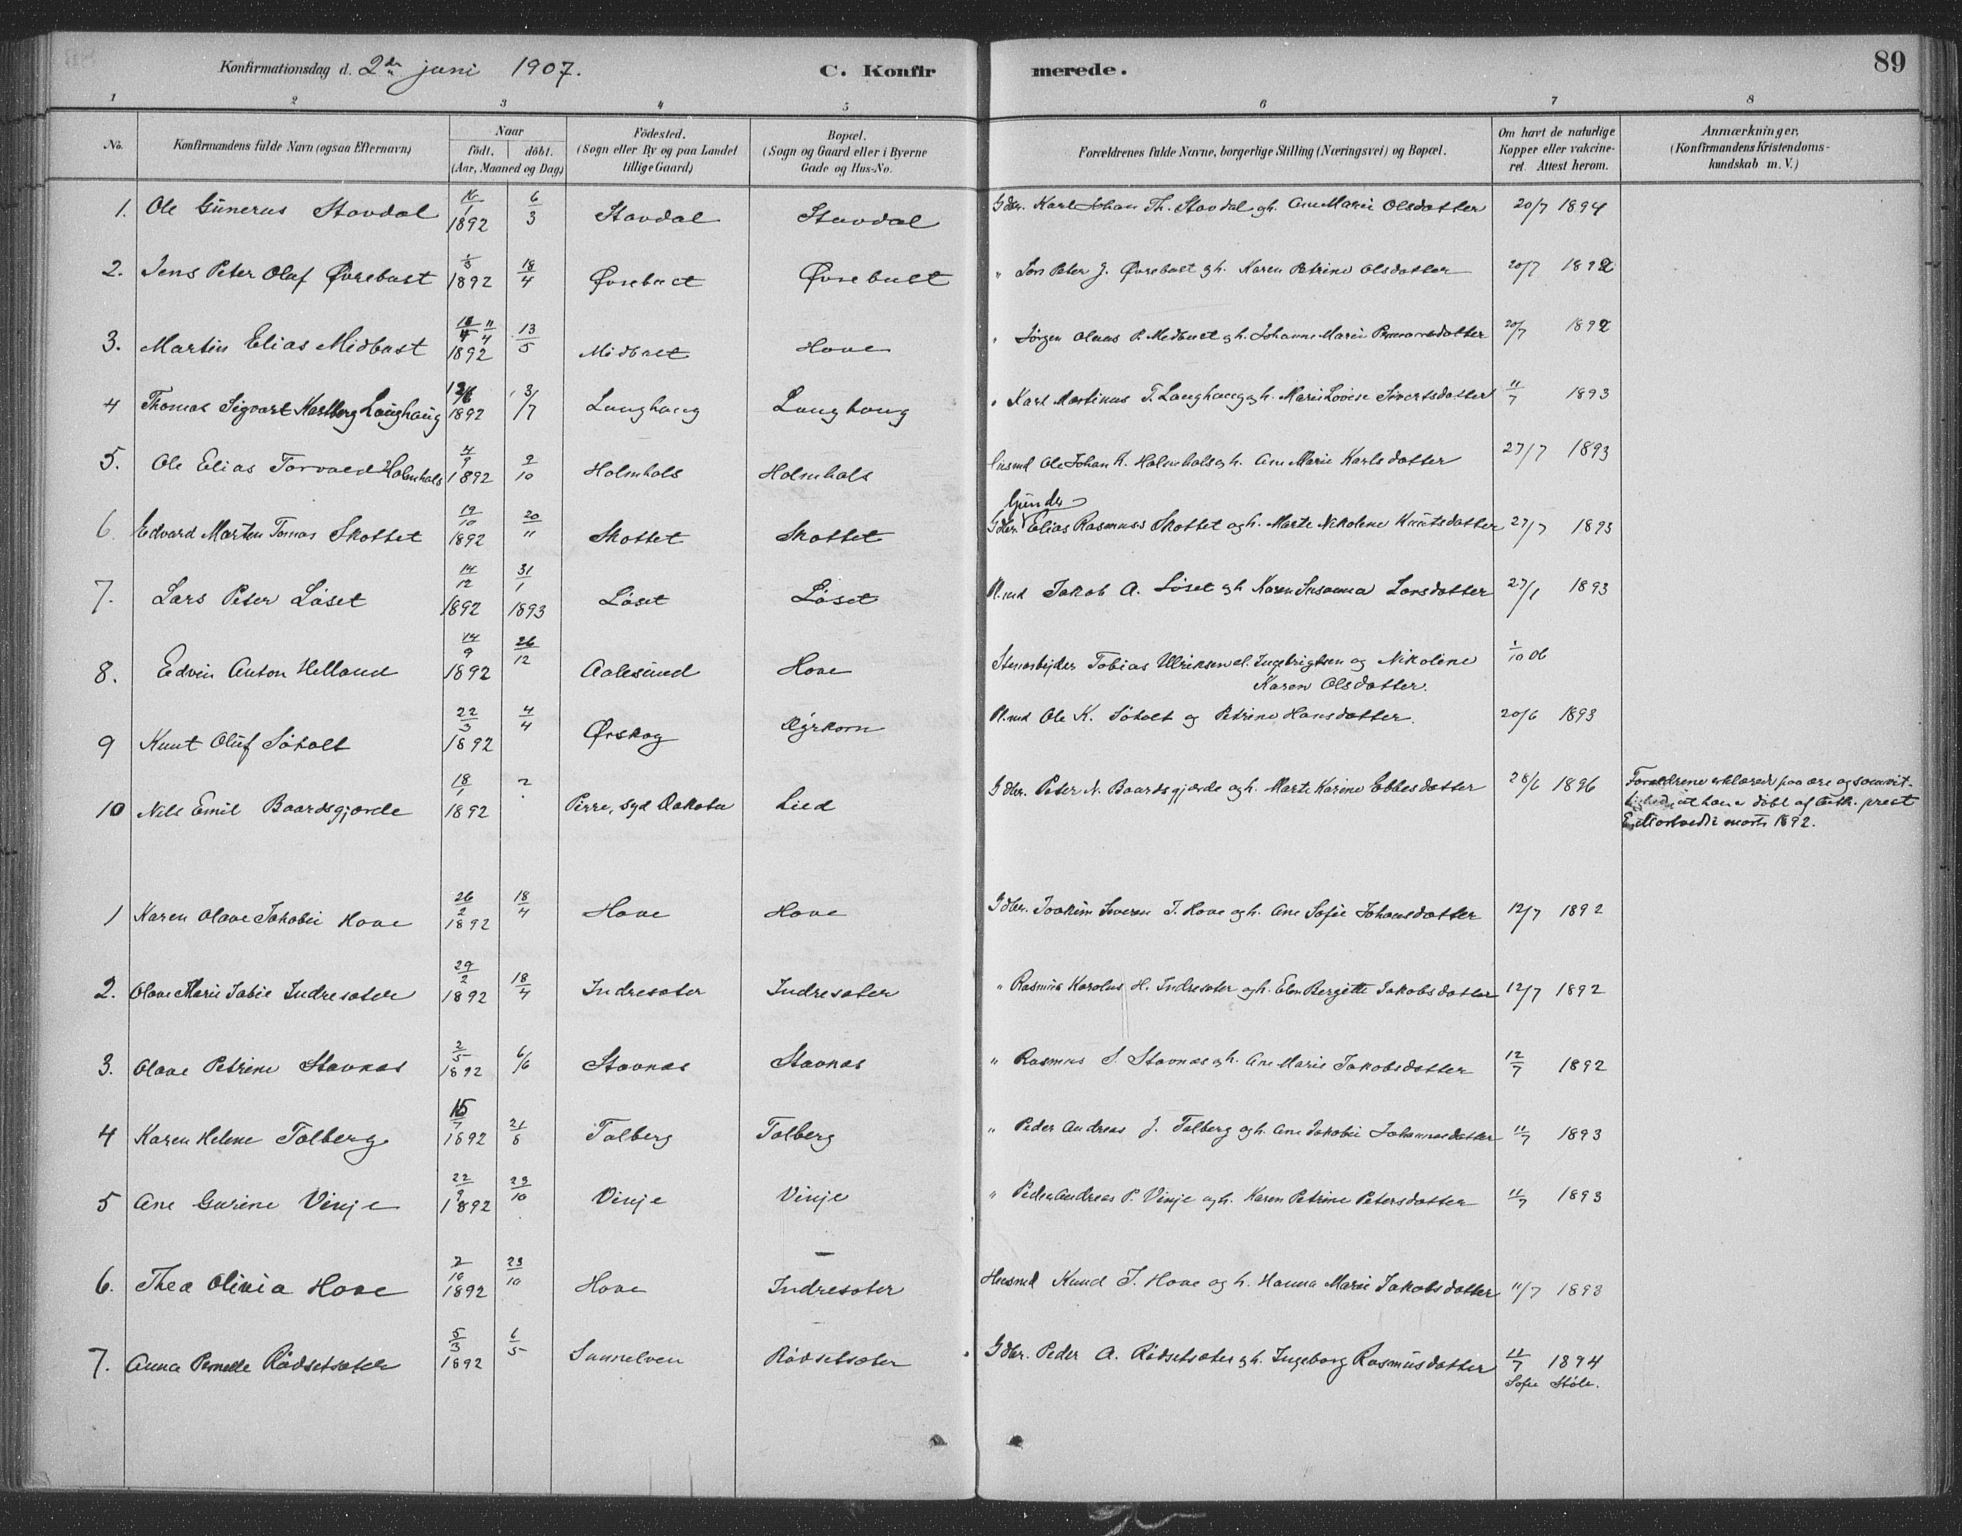 Konfirmationsdag d. 2den juni 1907. C. Konfirmerede. 89
1 2 3 4 5 6 7 8
No. Konfirmandens fulde Navn (ogsaa Efternavn) Naar födt. döbt. (Aar, Maaned og Dag) Födested. (Sogn eller By og paa Landet tillige Gaard) Bopæl. (Sogn og Gaard eller i Byerne Gade og Hus-No. Forældrenes fulde Navne, borgerlige Stilling (Næringsvei) og Bopæl. Om havt de naturlige Kopper eller vakcineret. Attest herom. Anmærkninger, (Konfirmandens Kristendomskundskab m. V.)
1. Ole Gunerus Stavdal /1 1892 6/3 Stavdal Stavdal Gdbr. Karl Johan Th. Stavdal og h. Ane Marie Olsdatter 20/7 1894
2. Jens Peter Olaf Øvrebust 1892 18/4 Øvrebust Øvrebust " Jon Peter J. Øvrebust og h. Karen Petrine Olsdatter 20/7 1892
3. Martin Elias Midbust 11/4 1892 13/5 Midbust Hove " Jørgen Olaus P. Midbust og h. Johanne Marie 20/7 1892
4 Thomas Sigvart Karlberg Langhaug 1892 3/7 Langhaug Langhaug " Karl Martinus T. Langhaug og h. Marie Lovise Sivertsdatter 11/7 1893
5. Ole Elias Torvald Holmhols 4/9 1892 9/10 Holmhols Holmhols Husmd Ole Johan K. Holmhols og h. Ane Marie Karlsdatter 27/7 1893
6. Edvard Marten Tomas Skottet 19/10 1892 20/" Skottet Skottet Gdbr. Gunder Elias Rasmuss Skottet og h. Marte Nikolene Knutsdatter 27/7 1893
7. Lars Peter Løset 14/12 1892 31/1 1893 Løset Løset Pl.md Jakob A. Løset og h. Karen Susanna Larsdatter 27/1 1893
8. Edvin Anton Helland 14/9 1892 26/12 Aalesund Hove Stenarbejder Tobias Ulriksen el. Ingebrigtsen og Nikoline Karen Olsdatter. 1/10 06
9 Knut Oluf Søholt 22/3 1892 4/4 Ørskog Ørkorn Pl.md Ole K. Søholt og Petrine Hansdatter. 20/6 1893
10 Nils Emil Baardsgjærde 18/1 1892 ? Pirre, Syd Dakota Lied Gdbr. Peter N. Baardsgjærde og h. Marte Karine Ebbesdatter 28/6 1896 Forældrene erklærede paa ære og samvittighed, at han e døbt af luth. prest marts 1892.
1 Karen Olave Jakobie Hove 26/2 1892 18/4 Hove Hove Gdbr. Joakim Severin J. Hove og h. Ane Sofie Johansdatter 12/7 1892
2. Olave Marie Tabie Indresæter 29/2 1892 18/4 Indresæter Indresæter " Rasmus Karolus H. Indresæter og h. Elen Bergitte Jakobsdatter 12/7 1892
3. Olave Petrine Stavnæs 2/5 1892 6/6 Stavnæs Stavnæs " Rasmus S. Stavnæs og h. Ane Marie Jakobsdatter 12/7 1892
4 Karen Helene Talberg 15/7 1892 21/8 Talberg Talberg " Peder Andreas J. Talberg og h. Ane Jakobie Johannesdatter 11/7 1893
5 Ane Gurine Vinje 22/9 1892 23/10 Vinje Vinje " Peder Andreas P. Vinje og h. Karen Petrine Petersdatter 11/7 1893
6. Thea Olivia Hove 2/10 1892 23/10 Hove Indresæter Husmd Knud J. Hove og h. Hanna Marie Jakobsdatter 11/7 1893
7. Anna Pernelle Rødsetsæter 5/3 1892 6/5 Sunnelven Rødsetsæter Gdbr. Peder A. Rødsetsæter og h. Ingeborg Rasmusdatter 11/7 1894
Sofie Støle.